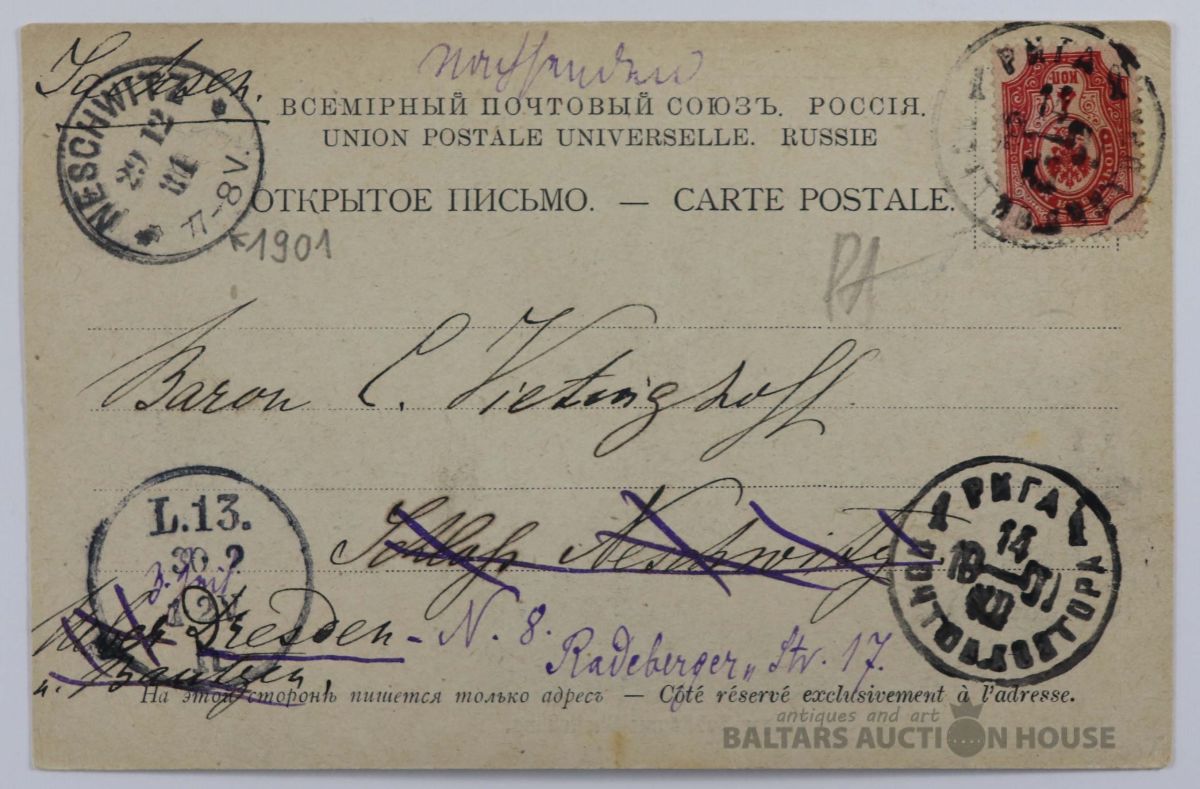 nachsenden
Sachsen.
ВСЕМІРНЫЙ ПОЧТОВЫЙ СОЮЗЪ. РОССІЯ.
UNION POSTALE UNIVERSELLE. RUSSIE
ОТКРЫТОЕ ПИСЬМО. — CARTE POSTALE.
NESCHWITZ
29 12
7-8 V.
1901
РИГА
КОП
Baron C. Vietinghoff
Schloss Neschwitz
L.13.
РИГА
14
ПОЧТ.ТЕЛ.КОНТОРА
Dresden - N. 8.
Radeberger Str. 17.
Bautzen
На этой сторонѣ пишется только адресъ — Côté réservé exclusivement à l'adresse.
antiques and art
BALTARS AUCTION HOUSE